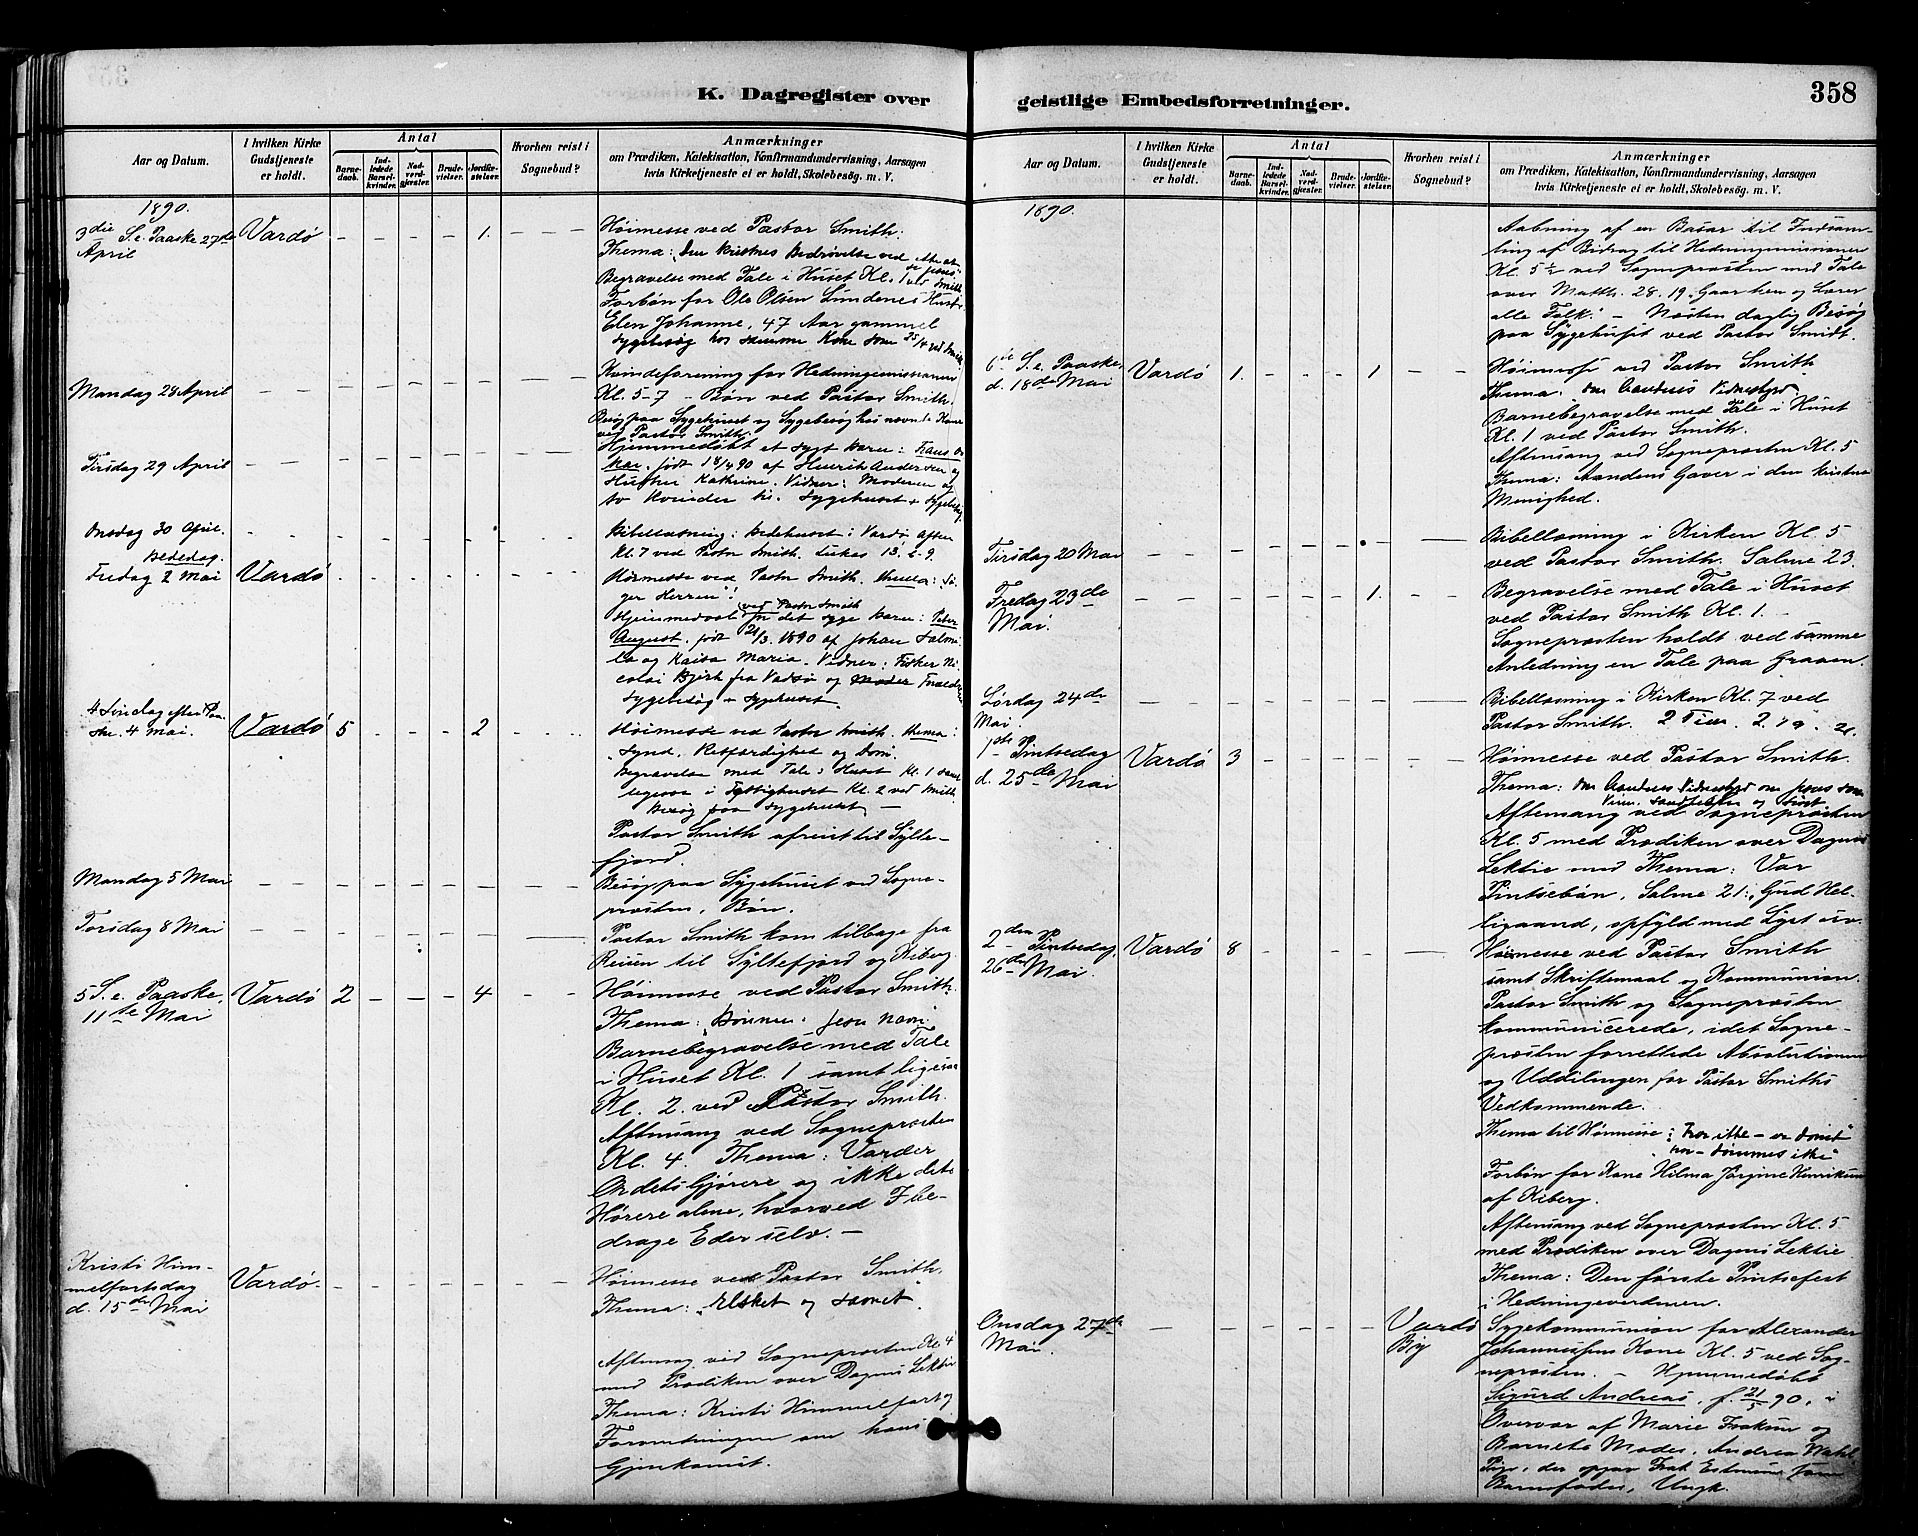 K. Dagregister over
Aar og Datum.
I hvilken Kirke
Gudstjeneste
er holdt.
Antal
Barne-
daab.
Ind-
ledede
Barsel-
kvinder.
Nad-
verd-
gjester.
Brude-
vielser.
Jordfæ-
stelser.
Hvorhen reist i
Sognebud?
Anmærkninger
om Prædiken, Katekisation, Konfirmandundervisning, Aarsagen
hvis Kirketjeneste ei er holdt, Skolebesøg. m. V.
1890.
3die S. e. Paaske 27de
April
Vardø
1.
Høimesse ved Pastor Smith.
Thema: Den kristnes Bedrøvelse ved
Begravelse med Tale i Huset Kl. 1 ved Smith
Forbøn for Ole Olsen Lundenes Hustru
Elen Johanne, 47 Aar gammel
Sygebesøg hos samme Kone som 25/4 ved Smith
Mandag 28 April
Kvindeforening for Hedningemissionen
Kl. 5-7 - Bøn ved Pastor Smith.
Besøg paa Sygehuset og Sygebesøg hos nævnte Kone
ved Pastor Smith.
Tirsdag 29 April
Hjemmedøbt et sygt barn: Frans Os-
kar, født 18/4 90 af Henrik Andersen og
Hustru Kathrine. Vidner: Moderen og
to Kvinder til. Sygehuset + Sygebesøg
Onsdag 30 April.
Bibellæsning i Bedehuset i Vardø Aften
Kl. 7 ved Pastor Smith. Lukas 13. 2-9.
Bededag.
Fredag 2 Mai
Vardø
Høimesse ved Pastor Smith. Thema: Sø-
ger Herren!
ved Pastor Smith
Hjemmedaab for det syge barn: Peter
August, født 21/3 1890 af Johan Salmi-
la og Kaisa Maria. Vidner: Fisker Ni-
colai Bjørk fra Vadsø og Moder Forældre
Sygebesøg + Sygehuset.
4 Søndag efter Paa-
ske. 4 Mai.
Vardø
5
2
Høimesse ved Pastor Smith. Thema:
Synd, Retfærdighet og Dom.
Begravelse med Tale i Huset Kl. 1 samt
ligesaa i Fattighuset Kl. 2 ved Smith.
Besøg paa Sygehuset —
Pastor Smith afreist til Sylte-
fjord.
Mandag 5 Mai
Besøg paa Sygehuset ved Sogne-
præsten, Bøn.
Torsdag 8 Mai
Pastor Smith kom tilbage fra
Reisen til Syltefjord og Kiberg.
5 S. e. Paaske,
11te Mai
Vardø
2
4
Høimesse ved Pastor Smith.
Thema: Bønnen i Jesu navn.
Barnebegravelse med Tale
i Huset Kl. 1 samt ligesaa
Kl. 2. ved Pastor Smith.
Aftensang ved Sognepræsten
Kl. 4. Thema: Vorder
Ordets Gjørere og ikke dets
Hørere alene, hvorved I be-
drage Eder selv. —
Kristi Him-
melfartsdag
d. 15de Mai
Vardø
Høimesse ved Pastor Smith.
Thema: "Elsket og savnet".
Aftensang ved Sognepræsten Kl. 4
med Prædiken over Dagens Lektie
Thema: Kristi Himmelfart og
Forventningen om hans
Gjenkomst.
geistlige Embedsforretninger.
358
Aar og Datum.
I hvilken Kirke
Gudstjeneste
er holdt.
Antal
Barne-
daab.
Ind-
ledede
Barsel-
kvinder.
Nad-
verd-
gjester.
Brude-
vielser.
Jordfæ-
stelser.
Hvorhen reist i
Sognebud?
Anmærkninger
om Prædiken, Katekisation, Konfirmandundervisning, Aarsagen
hvis Kirketjeneste ei er holdt, Skolebesøg m. V.
1890.
Aabning af en Basar til Indsam-
ling af Bidrag til Hedningemissionen
Kl. 5½ ved Sognepræsten med Tale
over Matth. 28. 19. Gaar hen og Lærer
alle Folk. - Næsten daglig Besøg
paa Sygehuset ved Pastor Smidt.
6te S. e. Paaske,
d. 18de Mai
Vardø
1.
1
Høimesse ved Pastor Smith
Thema: om Aandens Vidnesbyrd.
Barnebegravelse med Tale i Huset
Kl. 1 ved Pastor Smith.
Aftensang ved Sognepræsten Kl. 5
Thema: Aandens Gaver i den kristne
Menighed.
Tirsdag 20 Mai
Bibellæsning i Kirken Kl. 5
ved Pastor Smith. Salme 23.
Fredag 23de
Mai.
1.
Begravelse med Tale i Huset
ved Pastor Smith Kl. 1. -
Sognepræsten holdt ved samme
Anledning en Tale paa Graven.
Lørdag 24de
Mai
Bibellæsning i Kirken Kl. 7 ved
Pastor Smith. 2 Tim. 2. 19 - 21.
1ste Pintsedag
d. 25de Mai
Vardø
3
Høimesse ved Pastor Smith.
Thema: Om Aandens Vidnesbyrd om Jesus som
Aftensang ved Sognepræsten
Kl. 5 med Prædiken over Dagens
Lektie med Thema: Vor
Pintsebøn, Salme 21: Gud Hel-
ligaand, opfyld med Lyst osv.
2den Pintsedag,
26de Mai.
Vardø
8
Høimesse ved Pastor Smith
samt Skriftemaal og Kommunion.
Pastor Smith og Sognepræsten
kommunicerede, idet Sogne-
præsten forrettede Absolutionen
og Uddelingen for Pastor Smiths
Vedkommende.
Thema til Høimesse: "tror ikke - er dømt"
"tror - dømmes ikke"
Forbøn for Kone Hilma Jørgine Henriksen
af Kiberg.
Aftensang ved Sognepræsten Kl. 5
med Prædiken over Dagens Lektie.
Thema: Den første Pintsefest
i Hedningeverdenen.
Onsdag 27de
Mai.
Vardø
By
Sygekommunion for Alexander
Johannessens Kone Kl. 5 ved Sog-
nepræsten. - Hjemmedøbt
Sigurd Andreas, f. 21/5 90, i
Overvær af Marie Isaksen og
Barnets Moder, Andrea
Pige, der opgav Isak som
Barnefader, Ungk.